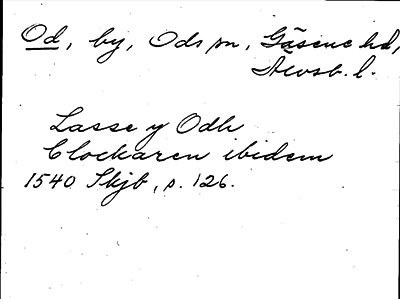 Od, by, Ods sn, Gäsene hd,
Älvsb. l.
Lasse y Odh
Clockaren ibidem
1540 Skjb, s. 126.